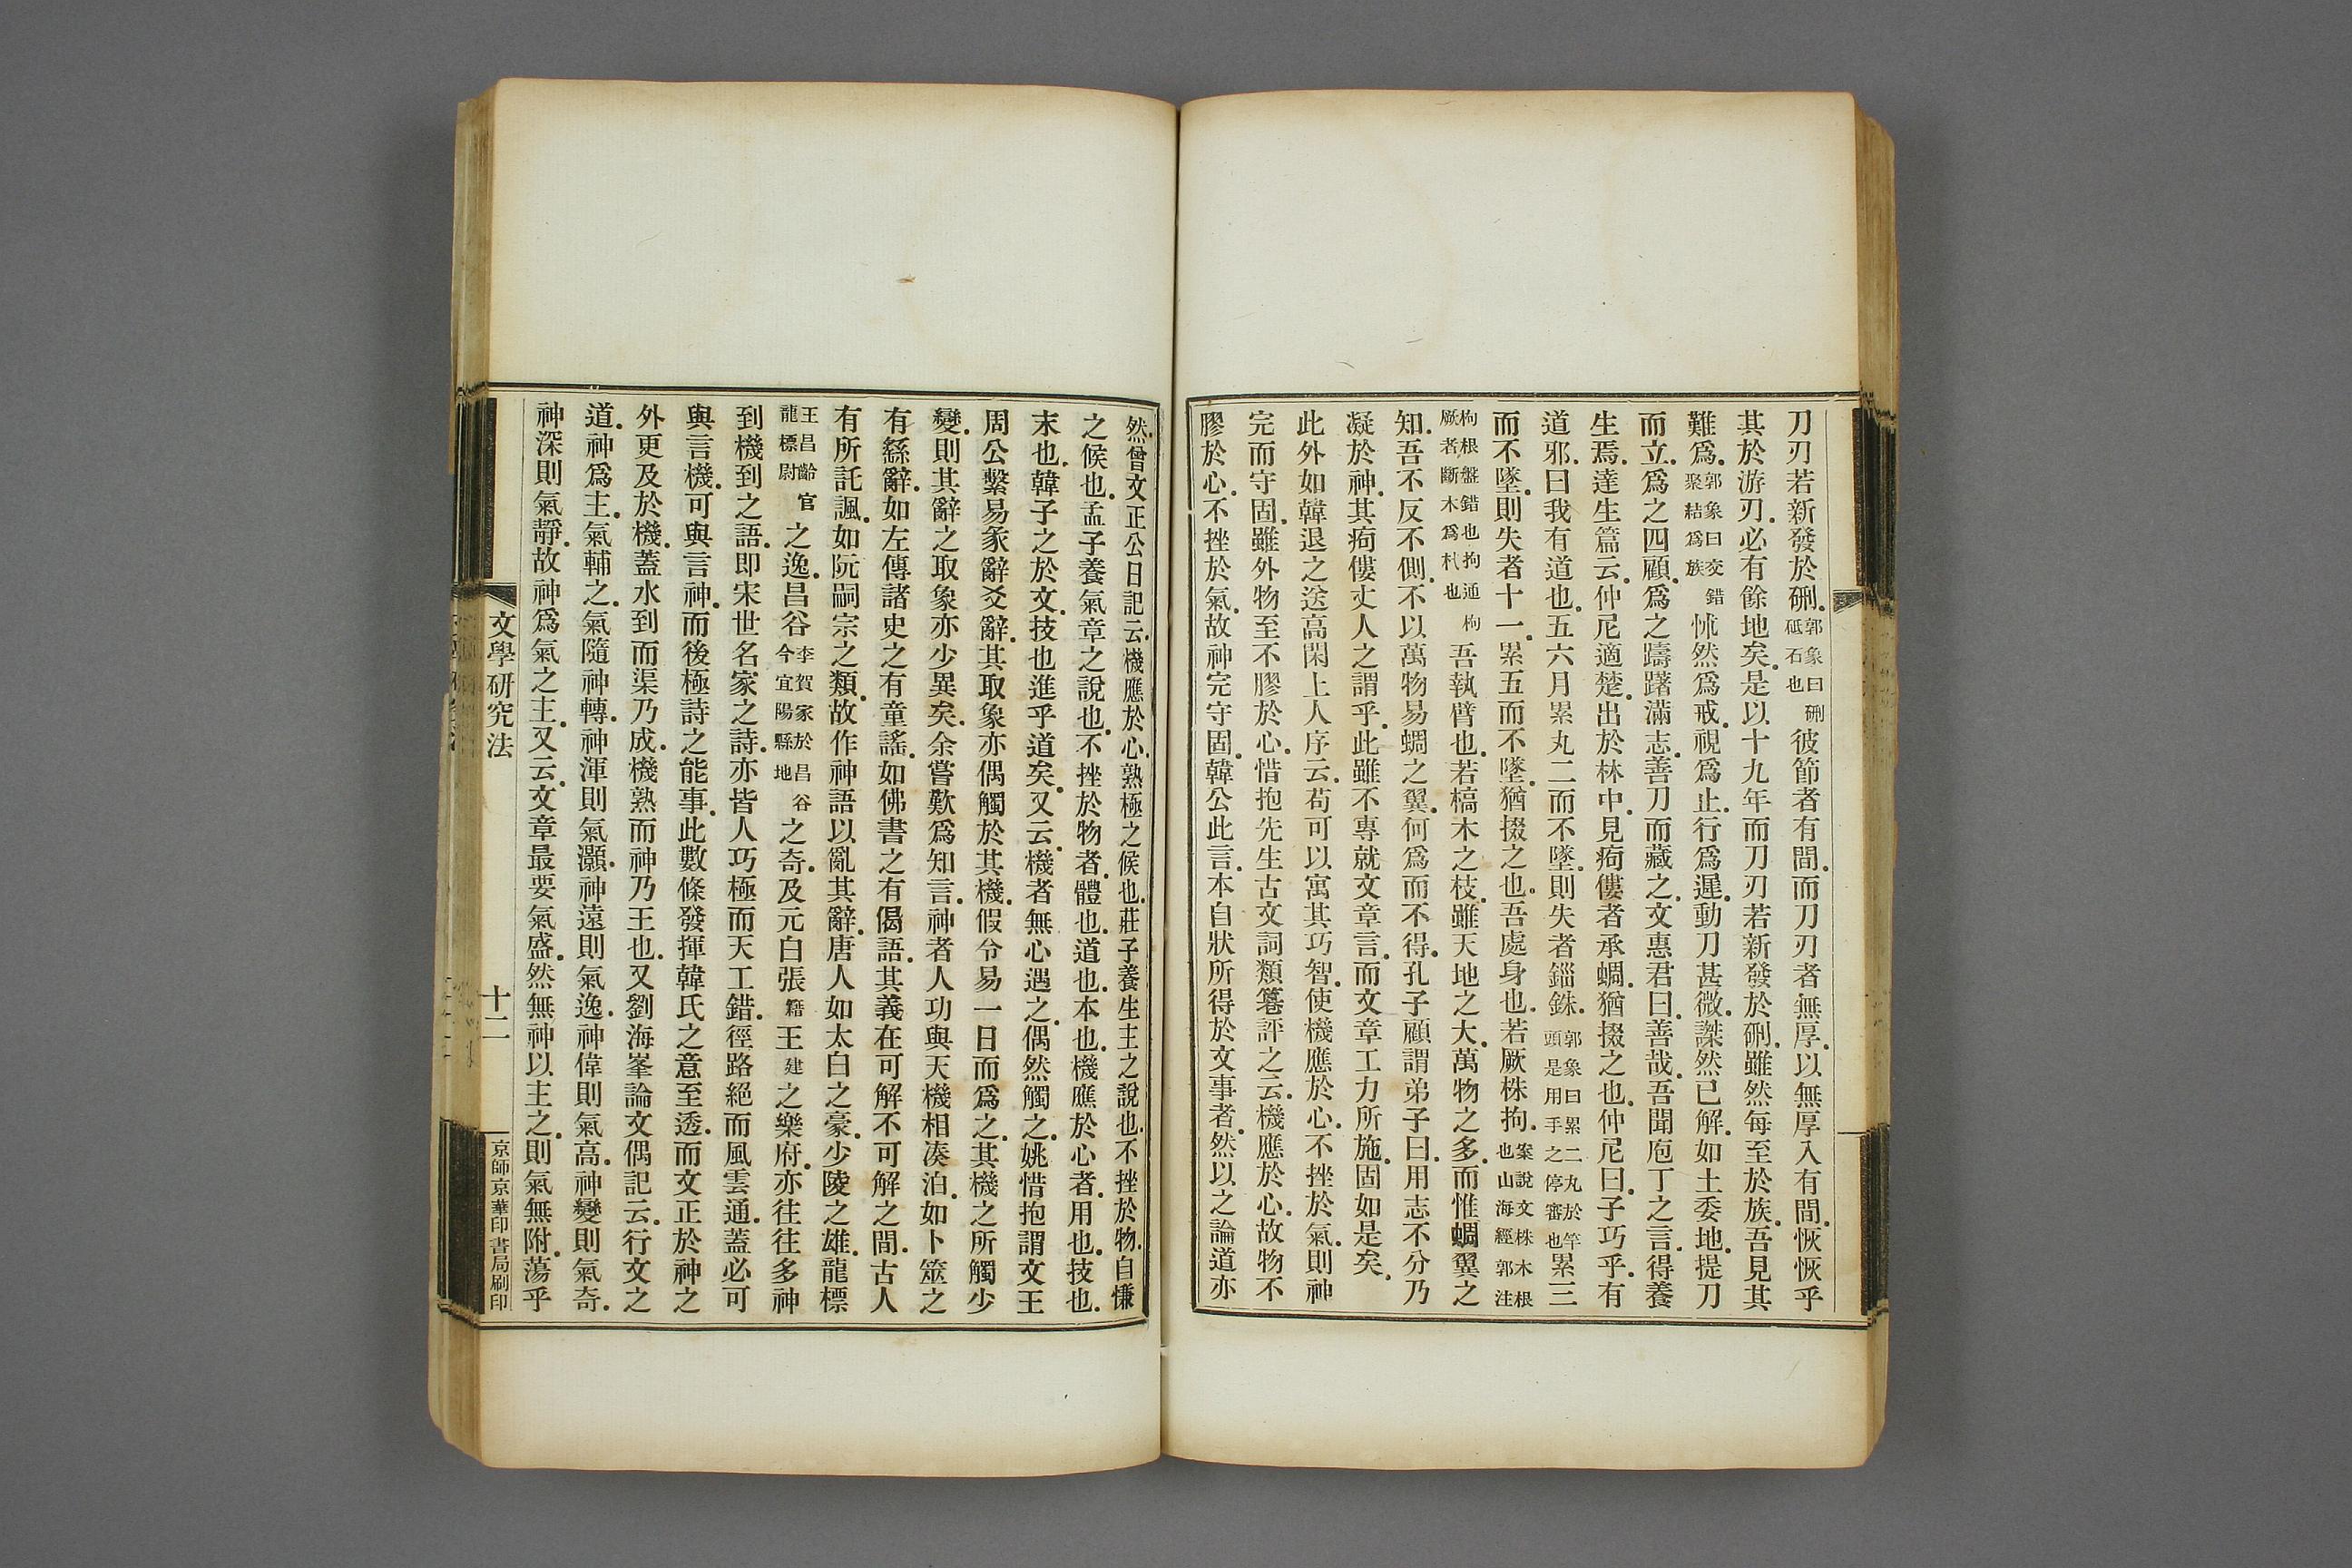 刀刃若新發於硎。郭象曰硎砥石也彼節者有間。而刀刃者無厚。以無厚入有間。恢恢乎
其於游刃。必有餘地矣。是以十九年而刀刃若新發於硎。雖然每至於族。吾見其
難爲。郭象曰交錯聚結爲族怵然爲戒。視爲止。行爲遲。動刀甚微。謋然已解。如土委地。提刀
而立。爲之四顧。爲之躊躇滿志。善刀而藏之。文惠君曰。善哉。吾聞庖丁之言。得養
生焉。達生篇云。仲尼適楚。出於林中。見痀僂者承蜩。猶掇之也。仲尼曰。子巧乎。有
道邪。曰我有道也。五六月累丸二而不墜。則失者錙銖。郭象曰累二丸於竿頭是用手之停審也累三
而不墜。則失者十一。累五而不墜。猶掇之也。吾處身也。若厥株拘。案說文株木根也山海經郭注
枸根盤錯也拘通枸厥者斷木爲杙也吾執臂也。若槁木之枝。雖天地之大。萬物之多。而惟蜩翼之
知。吾不反不側。不以萬物易蜩之翼。何爲而不得。孔子顧謂弟子曰。用志不分。乃
凝於神。其痀僂丈人之謂乎。此雖不專就文章言。而文章工力所施。固如是矣。
此外如韓退之送高閑上人序云。苟可以寓其巧智。使機應於心。不挫於氣。則神
完而守固。雖外物至不膠於心。惜抱先生古文詞類篹評之云。機應於心。故物不
膠於心。不挫於氣。故神完守固。韓公此言。本自狀所得於文事者。然以之論道亦
然。曾文正公日記云。機應於心。熟極之候也。莊子養生主之說也。不挫於物。自慊
之候也。孟子養氣章之說也。不挫於物者。體也。道也。本也。機應於心者。用也。技也。
末也。韓子之於文。技也進乎道矣。又云。機者無心遇之。偶然觸之。姚惜抱謂文王
周公繫易彖辭爻辭。其取象亦偶觸於其機。假令易一日而爲之。其機之所觸少
變。則其辭之取象亦少異矣。余嘗歎爲知言。神者人功與天機相湊泊。如卜筮之
有繇辭。如左傳諸史之有童謠。如佛書之有偈語。其義在可解不可解之間。古人
有所託諷。如阮嗣宗之類。故作神語以亂其辭。唐人如太白之豪。少陵之雄。龍標
王昌齡官龍標尉之逸。昌谷李賀家於昌谷今宜陽縣地之奇。及元白張籍王建之樂府。亦往往多神
到機到之語。即宋世名家之詩。亦皆人巧極而天工錯。徑路絕而風雲通。蓋必可
與言機。可與言神。而後極詩之能事。此數條發揮韓氏之意至透。而文正於神之
外更及於機。蓋水到而渠乃成。機熟而神乃王也。又劉海峯論文偶記云。行文之
道。神爲主。氣輔之。氣隨神轉。神渾則氣灝。神遠則氣逸。神偉則氣高。神變則氣奇。
神深則氣靜。故神爲氣之主。又云。文章最要氣盛。然無神以主之。則氣無附。蕩乎
文學研究法
十二
京師京華印書局刷印